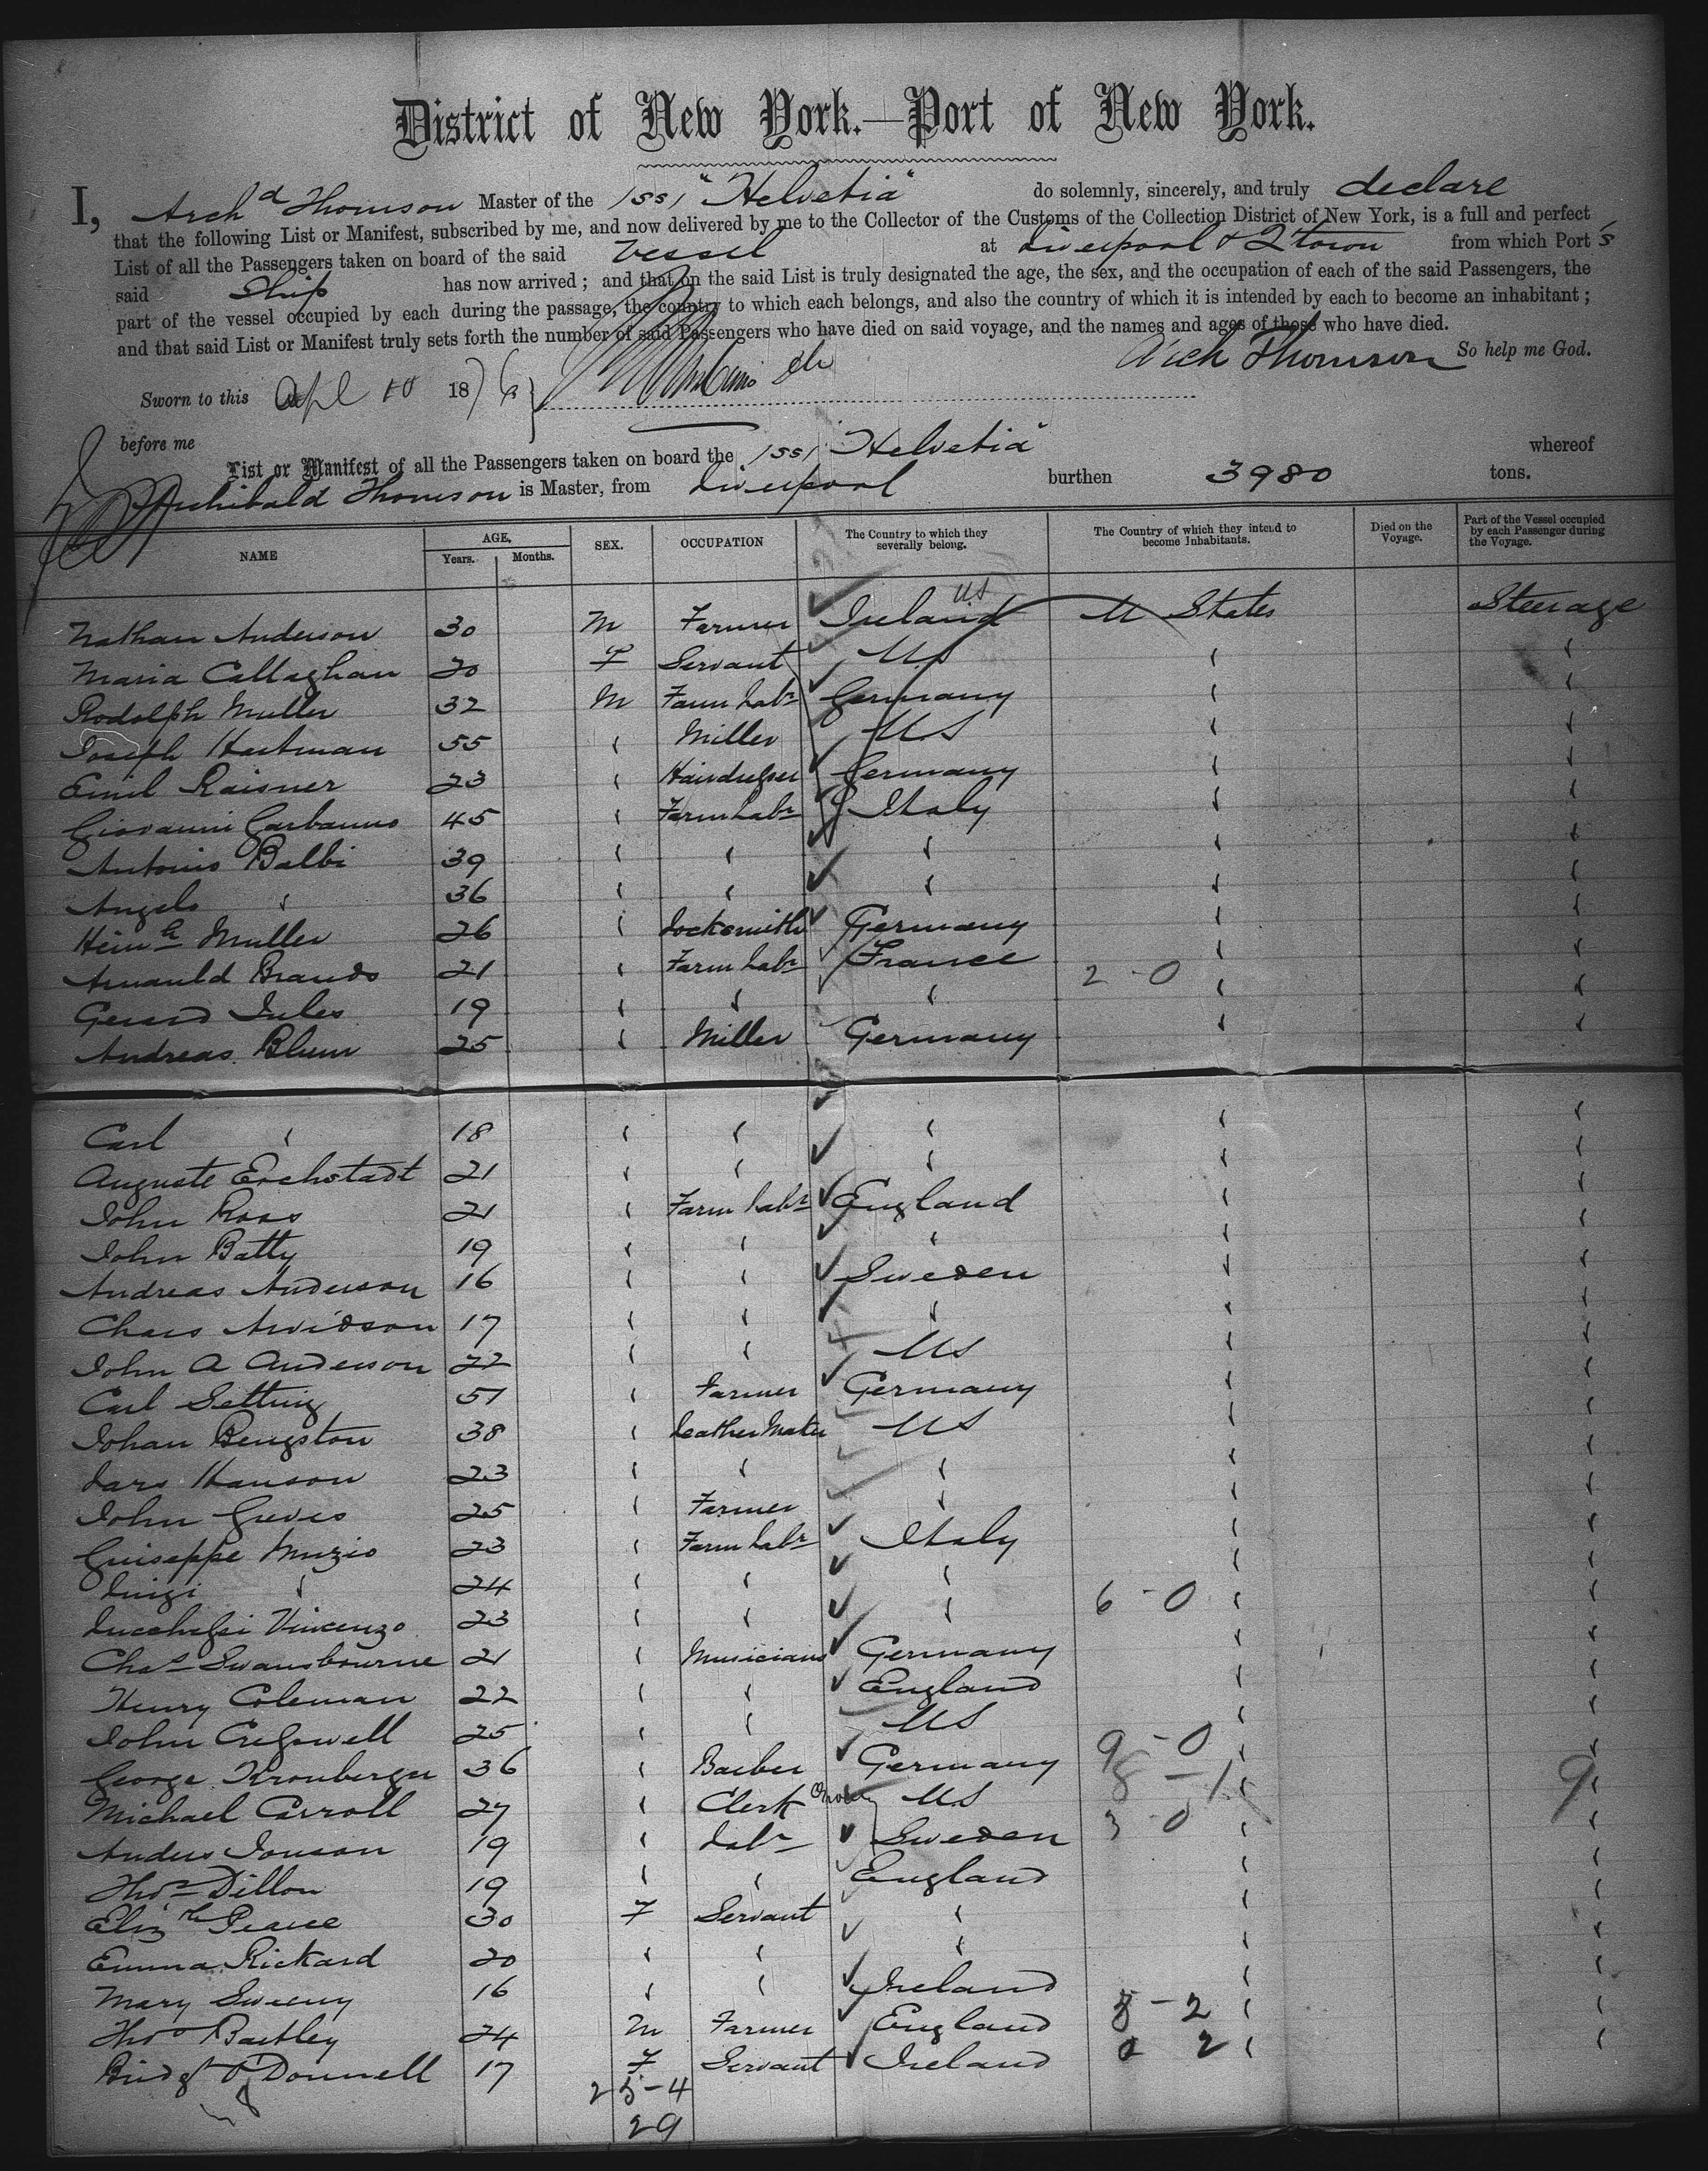 District of New York.—Port of New York.
I, Archd Thomson Master of the /ss/ "Helvetia" do solemnly, sincerely, and truly declare
that the following List or Manifest, subscribed by me, and now delivered by me to the Collector of the Customs of the Collection District of New York, is a full and perfect
List of all the Passengers taken on board of the said Vessel at Liverpool & Qtown from which Port's
said Ship has now arrived; and that on the said List is truly designated the age, the sex, and the occupation of each of the said Passengers, the
part of the vessel occupied by each during the passage, the country to which each belongs, and also the country of which it is intended by each to become an inhabitant;
and that said List or Manifest truly sets forth the number of said Passengers who have died on said voyage, and the names and ages of those who have died.
Arch Thomson So help me God.
Sworn to this Apl 10 1876
before me
List or Manifest of all the Passengers taken on board the /ss/ "Helvetia" whereof
Archibald Thomson is Master, from Liverpool burthen 3980 tons.
NAME AGE, Years. Months. SEX. OCCUPATION The Country to which they severally belong. The Country of which they intend to become Inhabitants. Died on the Voyage. Part of the Vessel occupied by each Passenger during the Voyage.
Nathan Anderson 30 M Farmer Ireland US U States Steerage
Maria Callaghan 20 F Servant US " "
Rodolph Muller 32 M Farm Labr Germany " "
Joseph Hartman 55 " Miller US " "
Emil Raisner 23 " Hairdresser Germany " "
Giovanni Garbanno 45 " Farm Labr Italy " "
Antonio Balbi 39 " " " " "
Angelo " 36 " " " " "
Heinh Muller 26 " Locksmith Germany " "
Arnauld Brands 21 " Farm Labr France 2-0 " "
Gerard Jules 19 " " " " "
Andreas Blum 25 " Miller Germany " "
Carl " 18 " " " " "
Auguste Erchstadt 21 " " " " "
John Ross 21 " Farm Labr England " "
John Batty 19 " " " " "
Andreas Anderson 16 " " Sweden " "
Chas Arvidson 17 " " " " "
John A Anderson 22 " " US " "
Carl Setting 51 " Farmer Germany " "
Johan Bengston 38 " Leather Mater US " "
Lars Hanson 23 " " " " "
John Greves 25 " Farmer " " "
Guiseppe Muzio 23 " Farm Labr Italy " "
Luigi " 24 " " " " "
Lucchesi Vincenzo 23 " " " 6-0 " "
Chas Swansbourne 21 " Musicians Germany " "
Henry Coleman 22 " " England " "
John Cresswell 25 " " US " "
George Kronberger 36 " Barber Germany 9-0 " "
Michael Carroll 27 " Clerk US 8-1 " 9 "
Anders Jonson 19 " Labr Sweden 3-0 " "
Thos Dillon 19 " " England " "
Elizth Pearce 30 F Servant " " "
Emma Rickard 20 " " " " "
Mary Sweeny 16 " " Ireland " "
Thos Bartley 24 M Farmer England 3-2 " "
Bridgt O'Donnell 17 F Servant Ireland 0 2 " "
25-4
29